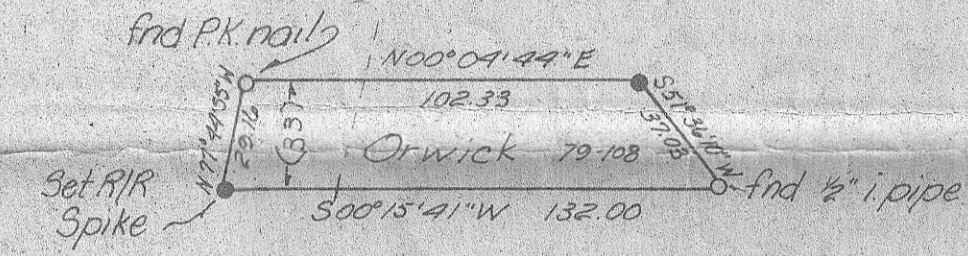 fnd P.K. nail
N00°04'44"E
102.33
S51°36'10"W
37.03
N77°44'35"W
29.16
(33')
Orwick 79-108
Set R/R
Spike
S00°15'41"W 132.00
fnd ½" i. pipe